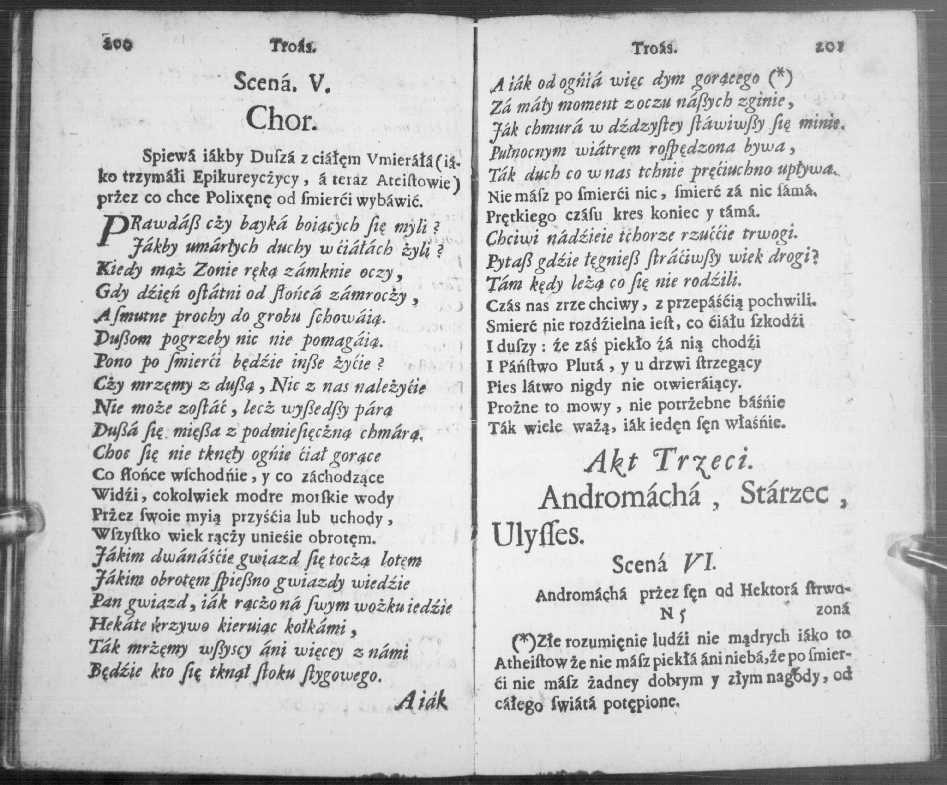 200 Troás.
Scená. V.
Chor.
Spiewá iákby Duſzá z ciáłęm Vmieráłá (iá-
ko trzymáli Epikureycżycy, á teraz Ateiſtowie)
przez co chce Polixęnę od śmierći wybáwić.
PRawdáß cży bayká boiących ſię myli ?
Jákby umárłych duchy w ćiáłách żyli ?
Kiedy mąż Zonie ręką zámknie oczy,
Gdy dźięń oſtátni od ſłońcá zámrocży,
A ſmutne prochy do grobu ſchowáią.
Dußom pogrzeby nic nie pomagáią.
Pono po śmierći będźie inße żyćie ?
Cży mrzęmy z dußą, Nic z nas należyćie
Nie może zoſtáć, lecż wyßedſßy párą
Dußá ſię mięßa z podmieſięcżną chmárą.
Choc ſię nie tknęły ogńie ćiał gorące
Co ſłońce wſchodńie, y co záchodzące
Widźi, cokolwiek modre morſkie wody
Przez ſwoie myią przyśćia lub uchody,
Wſzyſtko wiek rączy unieśie obrotęm.
Jákim dwánáśćie gwiazd ſię toczą lotęm
Jákim obrotęm ſpießno gwiazdy wiedźie
Pan gwiazd, iák rączo ná ſwym wożku iedźie
Hekáte krzywo kieruiąc kołkámi,
Ták mrżęmy wſßyscy áni więcey z námi
Będźie kto ſię tknął ſtoku ſtygowego.
A iák
Troás. 201
A iák od ogńiá więc dym gorącego (*)
Zá máły moment z oczu náßych zginie,
Ják chmurá w dżdzyſtey ſtáwiwſßy ſię minie.
Pułnocnym wiátręm roſpędzona bywa,
Ták duch co w nas tchnie pręćiuchno upływa.
Nie máſz po śmierći nic, śmierć zá nic ſámá.
Prętkiego czáſu kres koniec y támá.
Chciwi nádźieie tchorze rzuććie trwogi.
Pytaß gdźie lęgnieß ſtráćiwſßy wiek drogi?
Tám kędy leżą co ſię nie rodźili.
Czás nas zrze chciwy, z przepáśćią pochwili.
Smierć nie rozdźielna ieſt, co ćiáłu ſzkodźi
I duſzy : że záś piekło żá nią chodźi
I Páńſtwo Plutá, y u drzwi ſtrzegący
Pies łátwo nigdy nie otwieráiący.
Prożne to mowy, nie potrżebne báśnie
Ták wiele ważą, iák ieden ſęn właśńie.
Akt Trzeci.
Andromáchá, Stárzec,
Ulyſſes.
Scená VI.
Andromáchá przez ſęn od Hektorá ſtrwo-
N 5 zoná
(*) Złe rozumięnie ludźi nie mądrych iáko to
Atheiſtow że nie máſz piekłá áni niebá, że po śmier-
ći nie máſz żadney dobrym y złym nagody, od
cáłego świátá potępione.